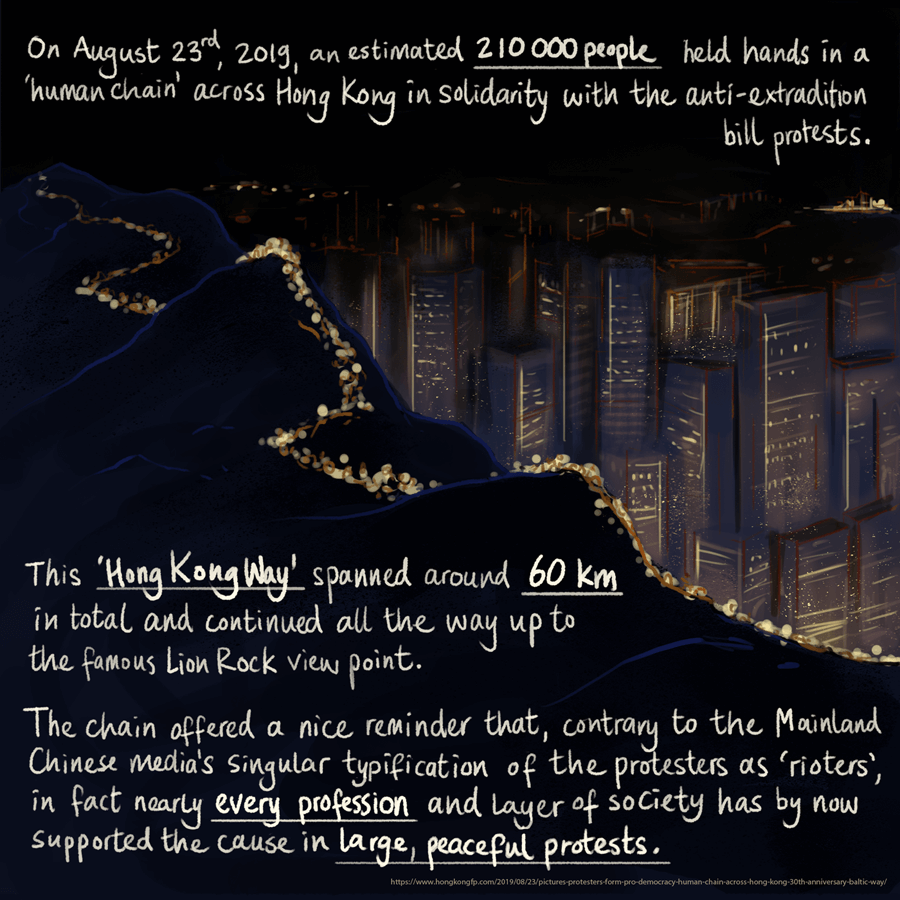 On August 23rd, 2019, an estimated 210 000 people held hands in a
'human chain' across Hong Kong in solidarity with the anti-extradition
bill protests.
This 'Hong Kong Way' spanned around 60 km
in total and continued all the way up to
the famous Lion Rock view point.
The chain offered a nice reminder that, contrary to the Mainland
Chinese media's singular typification of the protesters as 'rioters',
in fact nearly every profession and layer of society has by now
supported the cause in large, peaceful protests.
https://www.hongkongfp.com/2019/08/23/pictures-protesters-form-pro-democracy-human-chain-across-hong-kong-30th-anniversary-baltic-way/